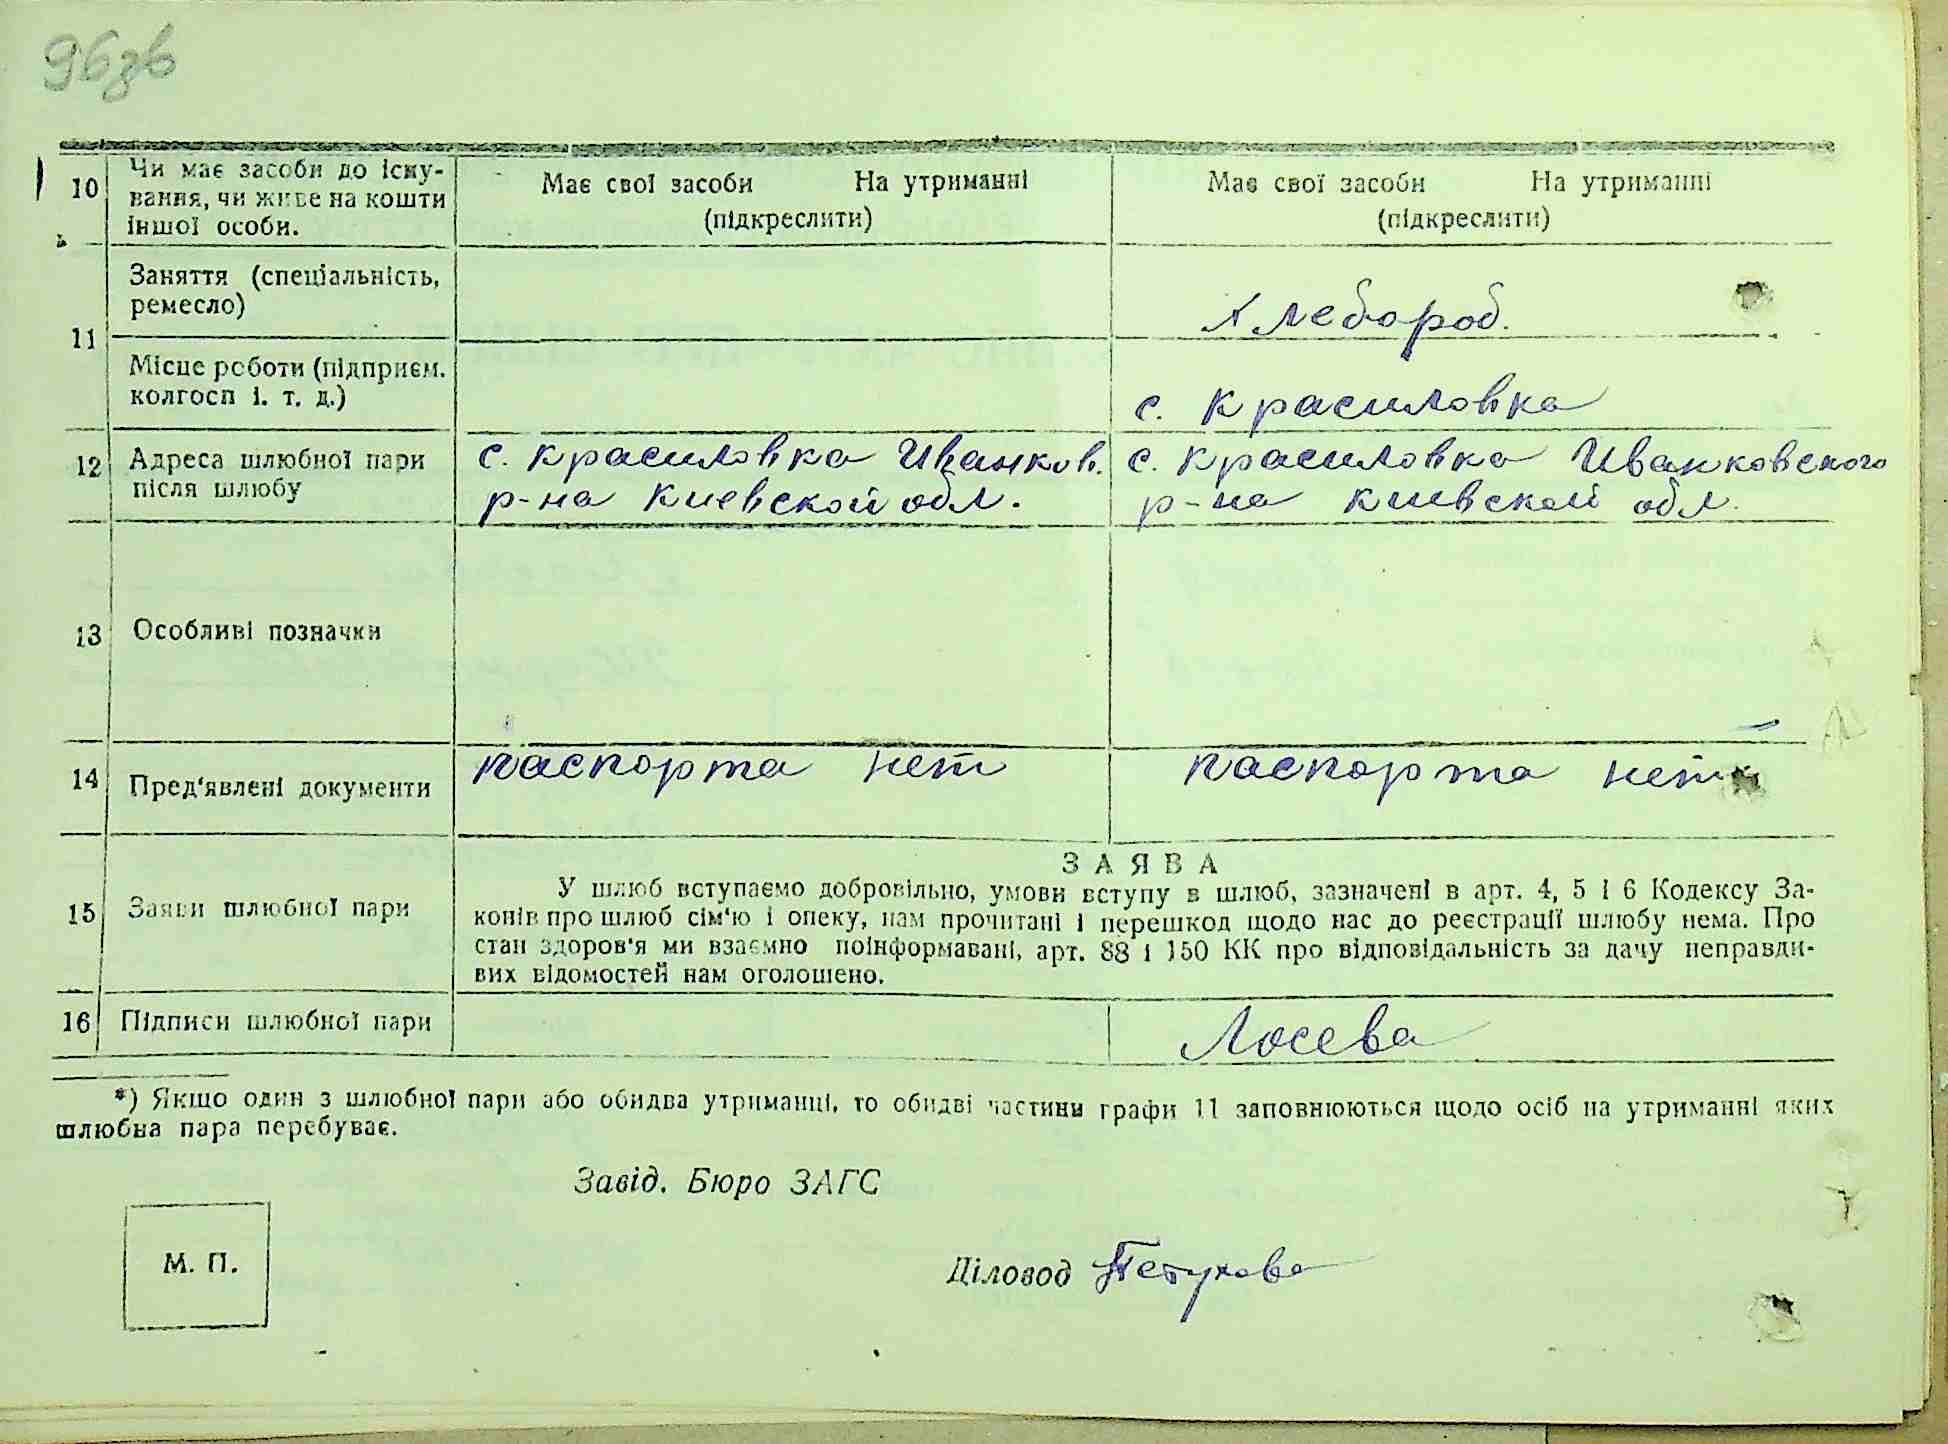 96зв
10 Чи має засоби до існу-
вання, чи живе на кошти
іншої особи.
Має свої засоби На утриманні
(підкреслити)
Має свої засоби На утриманні
(підкреслити)
11 Заняття (спеціальність,
ремесло)
Хлебороб.
Місце роботи (підприєм.
колгосп і. т. д.)
с. Красиловка
12 Адреса шлюбної пари
після шлюбу
с. Красиловка Иванков.
р-на Киевской обл.
с. Красиловка Иванковского
р-на Киевской обл.
13 Особливі позначки
14 Пред'явлені документи
паспорта нет
паспорта нет
15 Заяви шлюбної пари
ЗАЯВА
У шлюб вступаємо добровільно, умови вступу в шлюб, зазначені в арт. 4, 5 і 6 Кодексу За-
конів про шлюб сім'ю і опеку, нам прочитані і перешкод щодо нас до реєстрації шлюбу нема. Про
стан здоров'я ми взаємно поінформавані, арт. 88 і 150 КК про відповідальність за дачу неправди-
вих відомостей нам оголошено.
16 Підписи шлюбної пари
Лосева
*) Якщо один з шлюбної пари або обидва утриманці, то обидві частини графи 11 заповнюються щодо осіб на утриманні яких
шлюбна пара перебуває.
Завід. Бюро ЗАГС
М. П.
Діловод Петухова